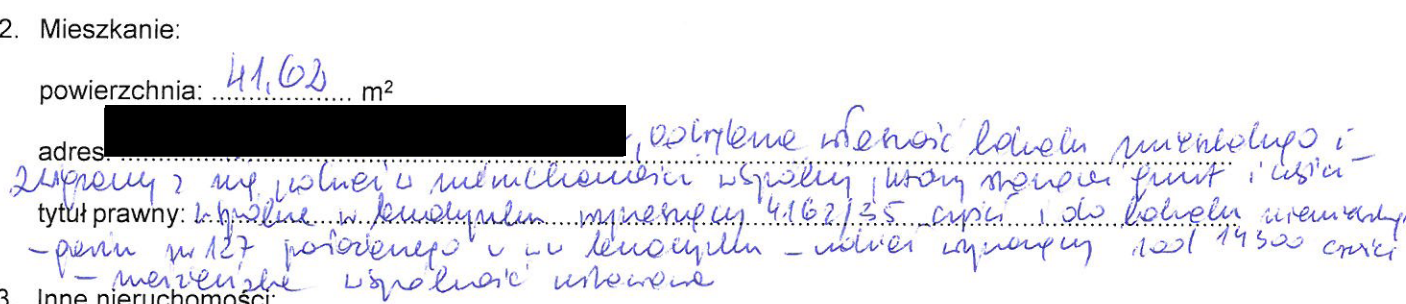 2. Mieszkanie:
powierzchnia: 41,62 m²
adres: , odrębna własność lokalu mieszkalnego i
związany z nią udział w nieruchomości wspólnej, którą stanowi grunt i części
tytuł prawny: wspólne w budynku wynoszący 4162/35 części i do lokalu
- garaż nr 127 położonego w w/w budynku - udział wynoszący 100/14300 części
- małżeńska wspólność ustawowa
3. Inne nieruchomości: